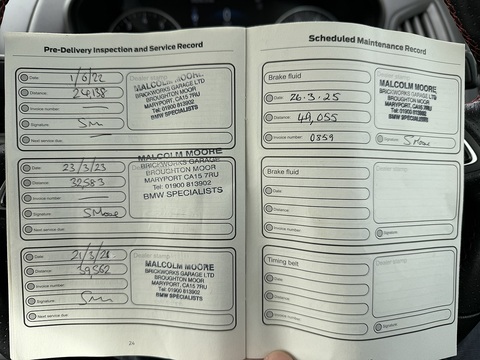 Pre-Delivery Inspection and Service Record
Date: 1/6/22
Distance: 24,138
Invoice number:
Signature: Sm
Next service due:
Dealer stamp
MALCOLM MOORE
BRICKWORKS GARAGE LTD
BROUGHTON MOOR
MARYPORT, CA15 7RU
Tel: 01900 813902
BMW SPECIALISTS
Date: 23/3/23
Distance: 32583
Invoice number:
Signature: SMoore
Next service due:
MALCOLM MOORE
BRICKWORKS GARAGE
BROUGHTON MOOR
MARYPORT CA15 7RU
Tel: 01900 813902
BMW SPECIALISTS
Date: 21/3/24
Distance: 39562
Invoice number:
Signature: Sm
Next service due:
Dealer stamp
MALCOLM MOORE
BRICKWORKS GARAGE LTD
BROUGHTON MOOR
MARYPORT, CA15 7RU
Tel: 01900 813902
BMW SPECIALISTS
24
Scheduled Maintenance Record
Brake fluid
Date: 26.3.25
Distance: 49,055
Invoice number: 0859
Dealer stamp
MALCOLM MOORE
BRICKWORKS GARAGE LTD
BROUGHTON MOOR
MARYPORT, CA15 7RU
Tel: 01900 813902
BMW SPECIALISTS
Signature: SMoore
Brake fluid
Date:
Distance:
Invoice number:
Dealer stamp
Signature:
Timing belt
Date:
Distance:
Invoice number:
Dealer stamp
Signature: